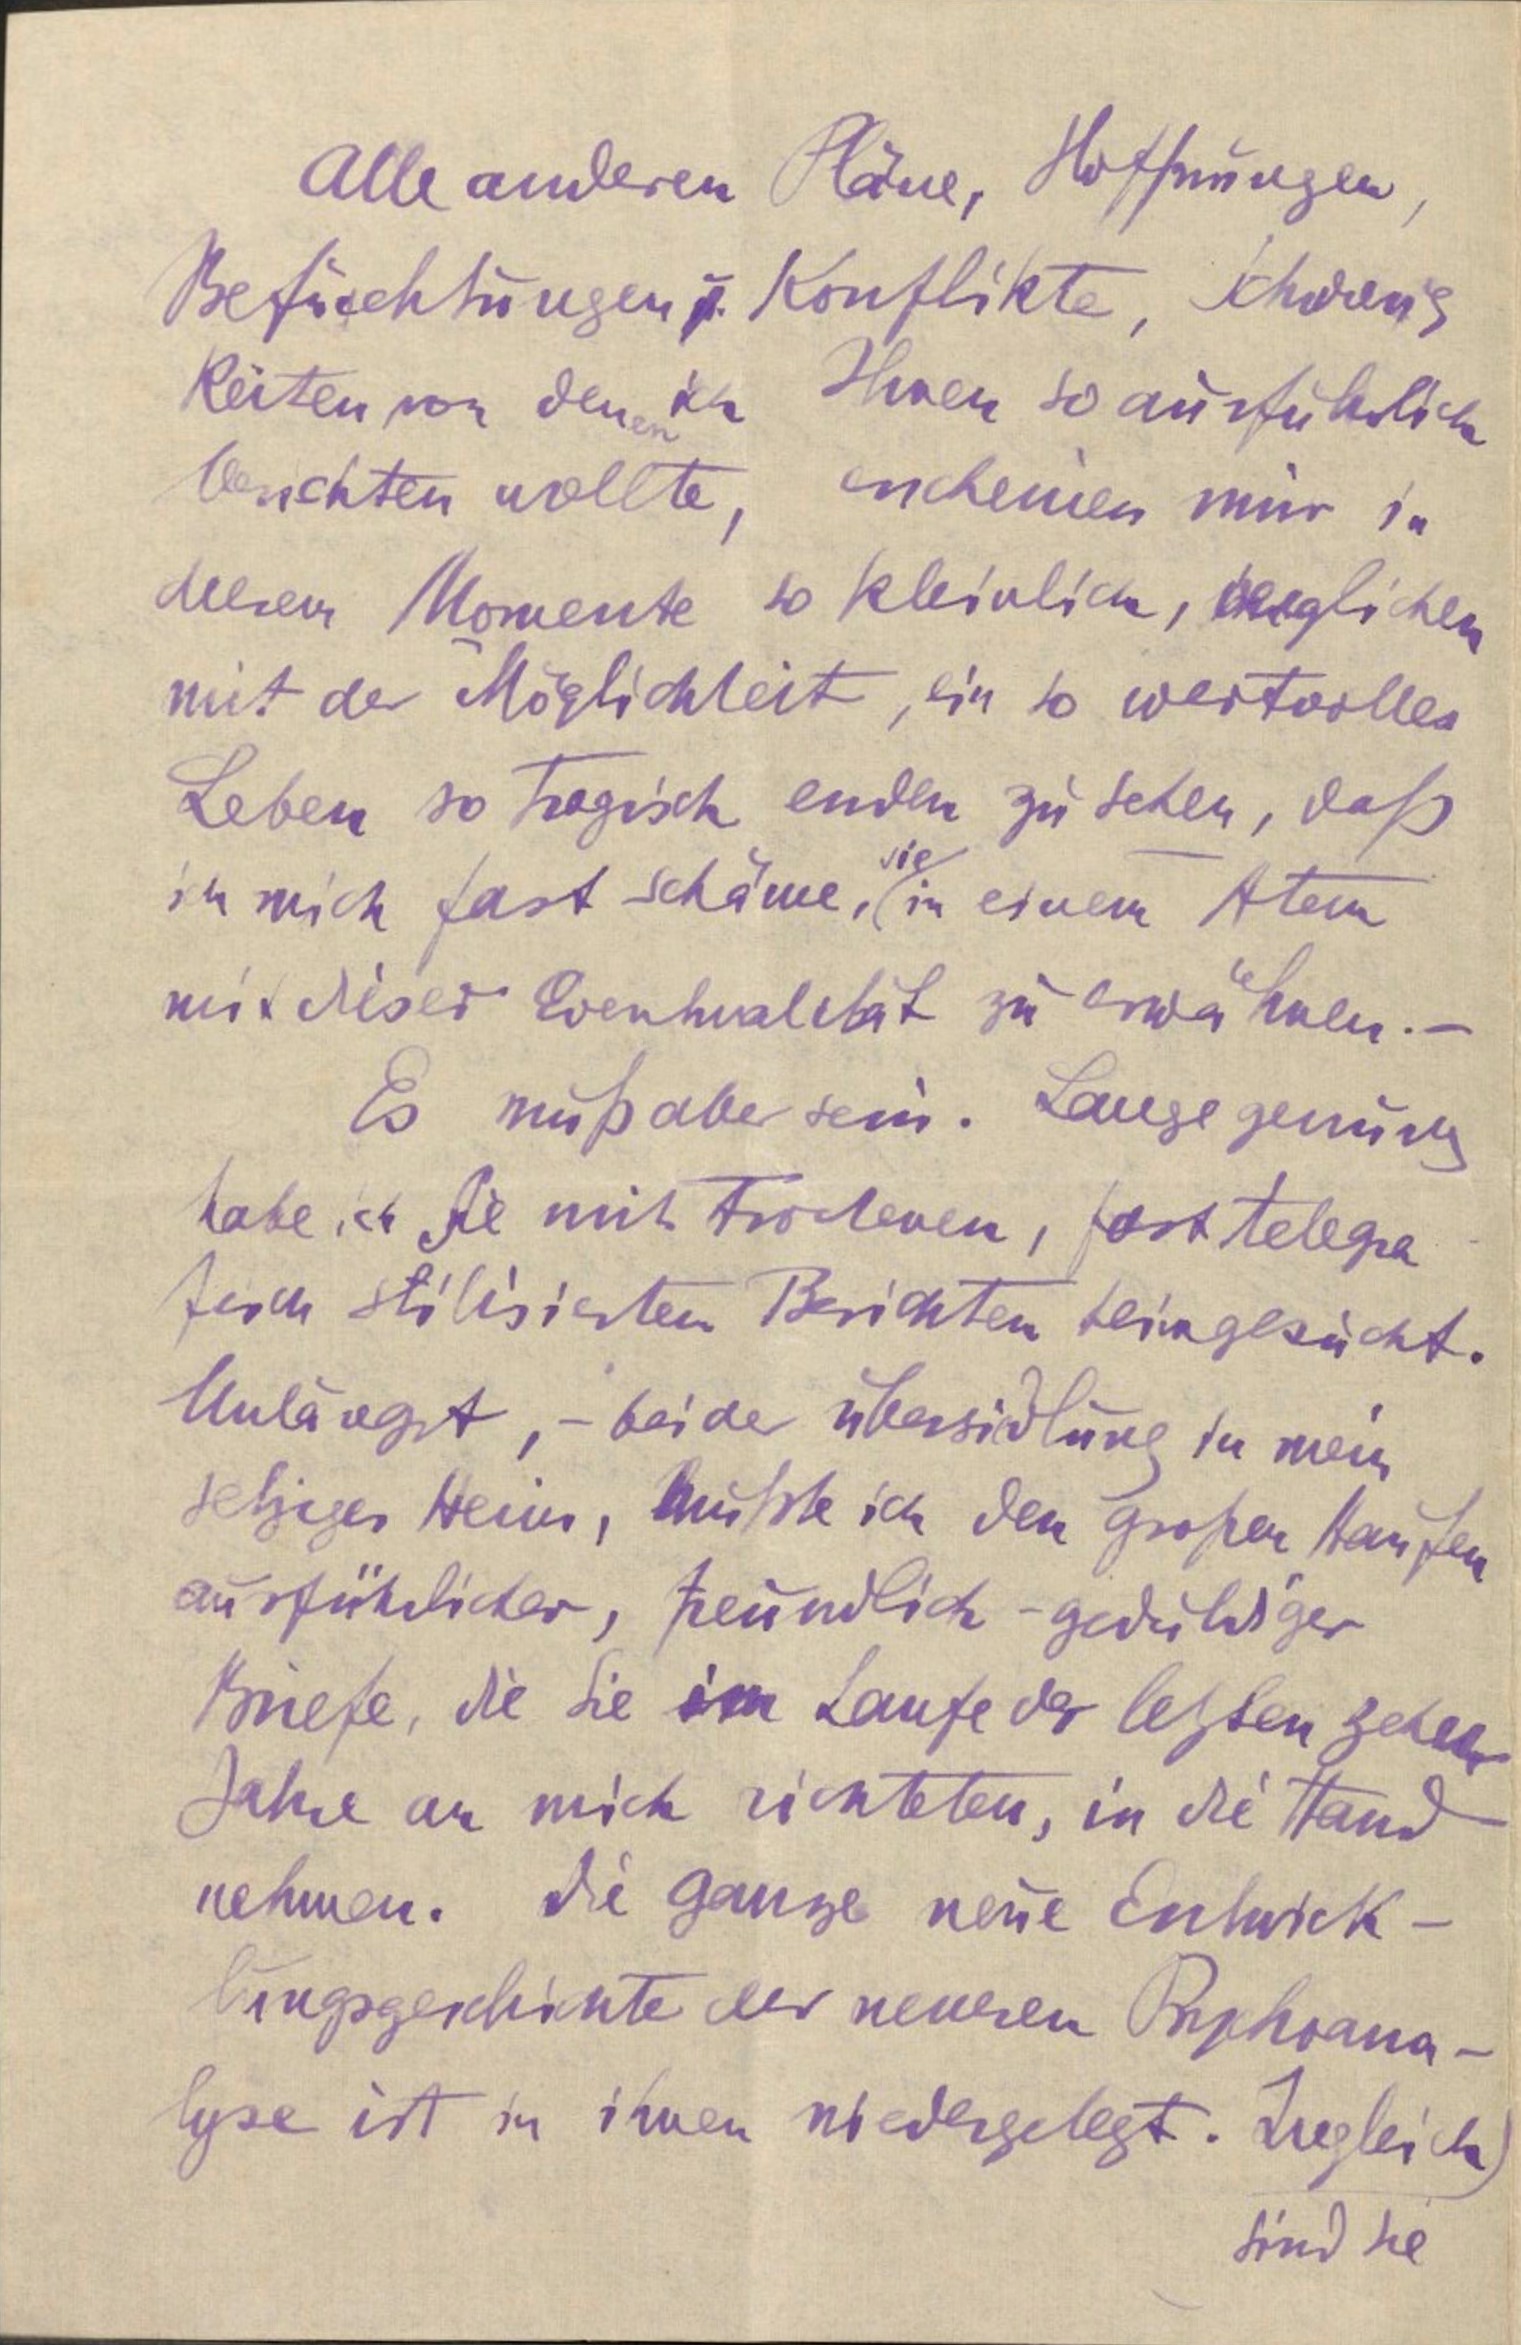 Alle anderen Pläne, Hoffnungen,
Befürchtungen u. Konflikte, Schwierig
keiten von denen ich Ihnen so ausführlich
berichten wollte, erscheinen mir in
diesem Momente so kleinlich, verglichen
mit der Möglichkeit, ein so wertvolles
Leben so tragisch enden zu sehen, daß
ich mich fast schäme, sie in einem Atem
mit diser Eventualität zu erwähnen. –
Es muß aber sein. Lange genung
habe ich Sie mit trockenen, fast telegra
fisch stilisierten Berichten heimgesucht.
Unlängst, – bei der übersidlung in mein
jetziges Heim, mußte ich den großen Haufen
ausführlicher, freundlich-geduldiger
Briefe, die Sie im Laufe der letzten zehen
Jahre an mich richteten, in die Hand
nehmen. Die ganze neue Entwick-
lungsgeschichte der neueren Psychoana-
lyse ist in ihnen niedergelegt. Zugleich
sind sie